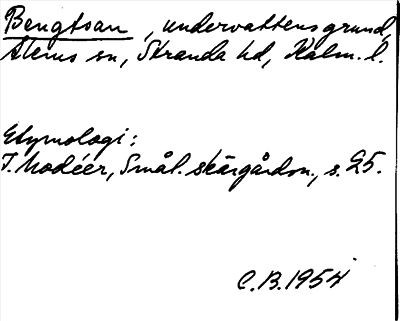 Bengtsan, undervattensgrund,
Ålems sn, Stranda hd, Kalm. l.
Etymologi:
I. Modéer, Smål. skärgårdsn., s. 25.
C.B. 1954